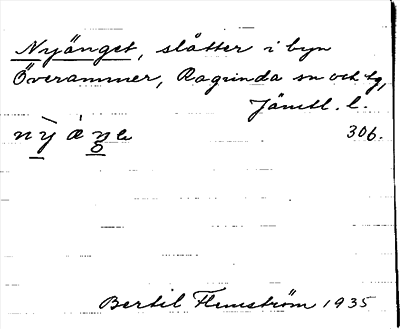 Nyänget, slåtter i byn
Överammer, Ragunda sn och tg,
Jämtl. l.
nỳ áŋe 306.
Bertil Flemström 1935